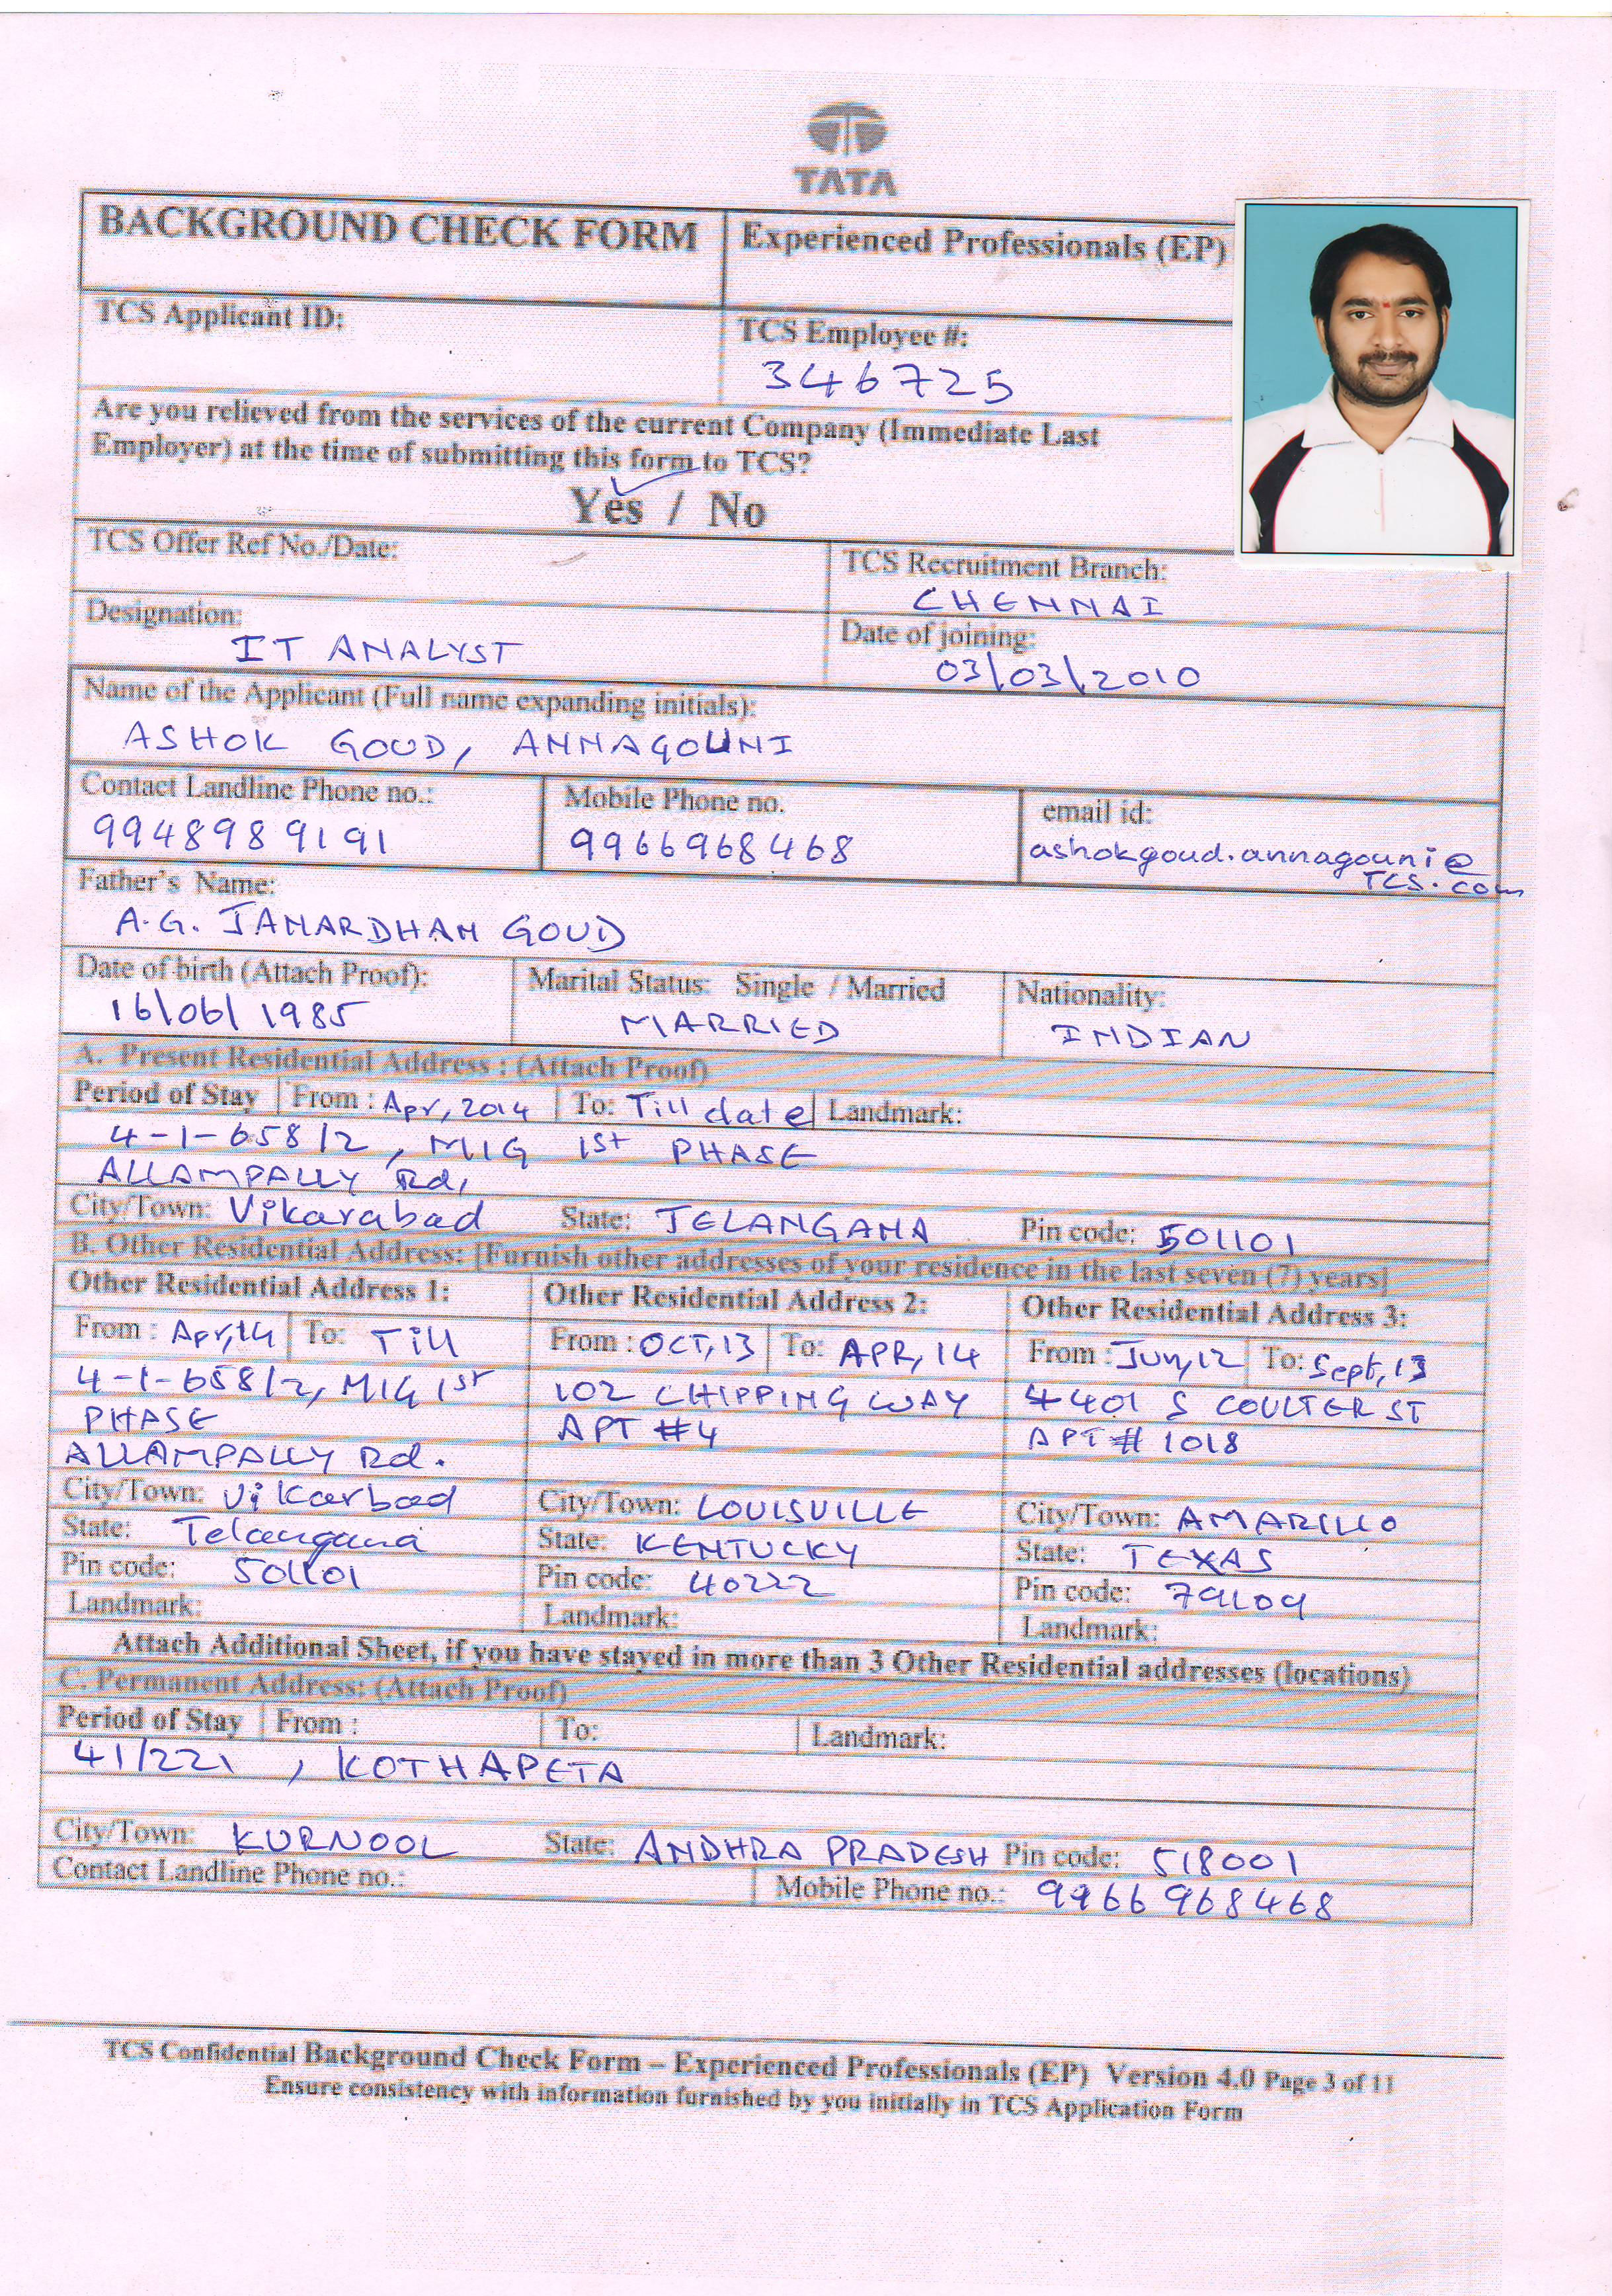 TATA
BACKGROUND CHECK FORM Experienced Professionals (EP)
TCS Applicant ID: TCS Employee #:
346725
Are you relieved from the services of the current Company (Immediate Last
Employer) at the time of submitting this form to TCS?
Yes / No
TCS Offer Ref No./Date: TCS Recruitment Branch:
CHENNAI
Designation: Date of joining:
IT ANALYST 03/03/2010
Name of the Applicant (Full name expanding initials):
ASHOK GOUD, ANNAGOUNI
Contact Landline Phone no.: Mobile Phone no. email id:
9948989191 9966968468 ashokgoud.annagouni@
TCS.com
Father's Name:
A.G. JANARDHAN GOUD
Date of birth (Attach Proof): Marital Status: Single / Married Nationality:
16/06/1985 MARRIED INDIAN
A. Present Residential Address : (Attach Proof)
Period of Stay From : Apr, 2014 To: Till date Landmark:
4-1-658/2, MIG 1st PHASE
ALLAMPALLY Rd,
City/Town: Vikarabad State: TELANGANA Pin code: 501101
B. Other Residential Address: [Furnish other addresses of your residence in the last seven (7) years]
Other Residential Address 1: Other Residential Address 2: Other Residential Address 3:
From : Apr,14 To: Till From : OCT,13 To: APR, 14 From : Jun,12 To: Sept, 13
4-1-658/2, MIG 1st 102 CHIPPING WAY 4401 S COULTER ST
PHASE APT #4 APT # 1018
ALLAMPALLY Rd.
City/Town: Vikarbad City/Town: LOUISVILLE City/Town: AMARILLO
State: Telangana State: KENTUCKY State: TEXAS
Pin code: 501101 Pin code: 40222 Pin code: 79109
Landmark: Landmark: Landmark:
Attach Additional Sheet, if you have stayed in more than 3 Other Residential addresses (locations)
C. Permanent Address: (Attach Proof)
Period of Stay From : To: Landmark:
41/221, KOTHAPETA
City/Town: KURNOOL State: ANDHRA PRADESH Pin code: 518001
Contact Landline Phone no.: Mobile Phone no.: 9966968468
TCS Confidential Background Check Form – Experienced Professionals (EP) Version 4.0 Page 3 of 11
Ensure consistency with information furnished by you initially in TCS Application Form